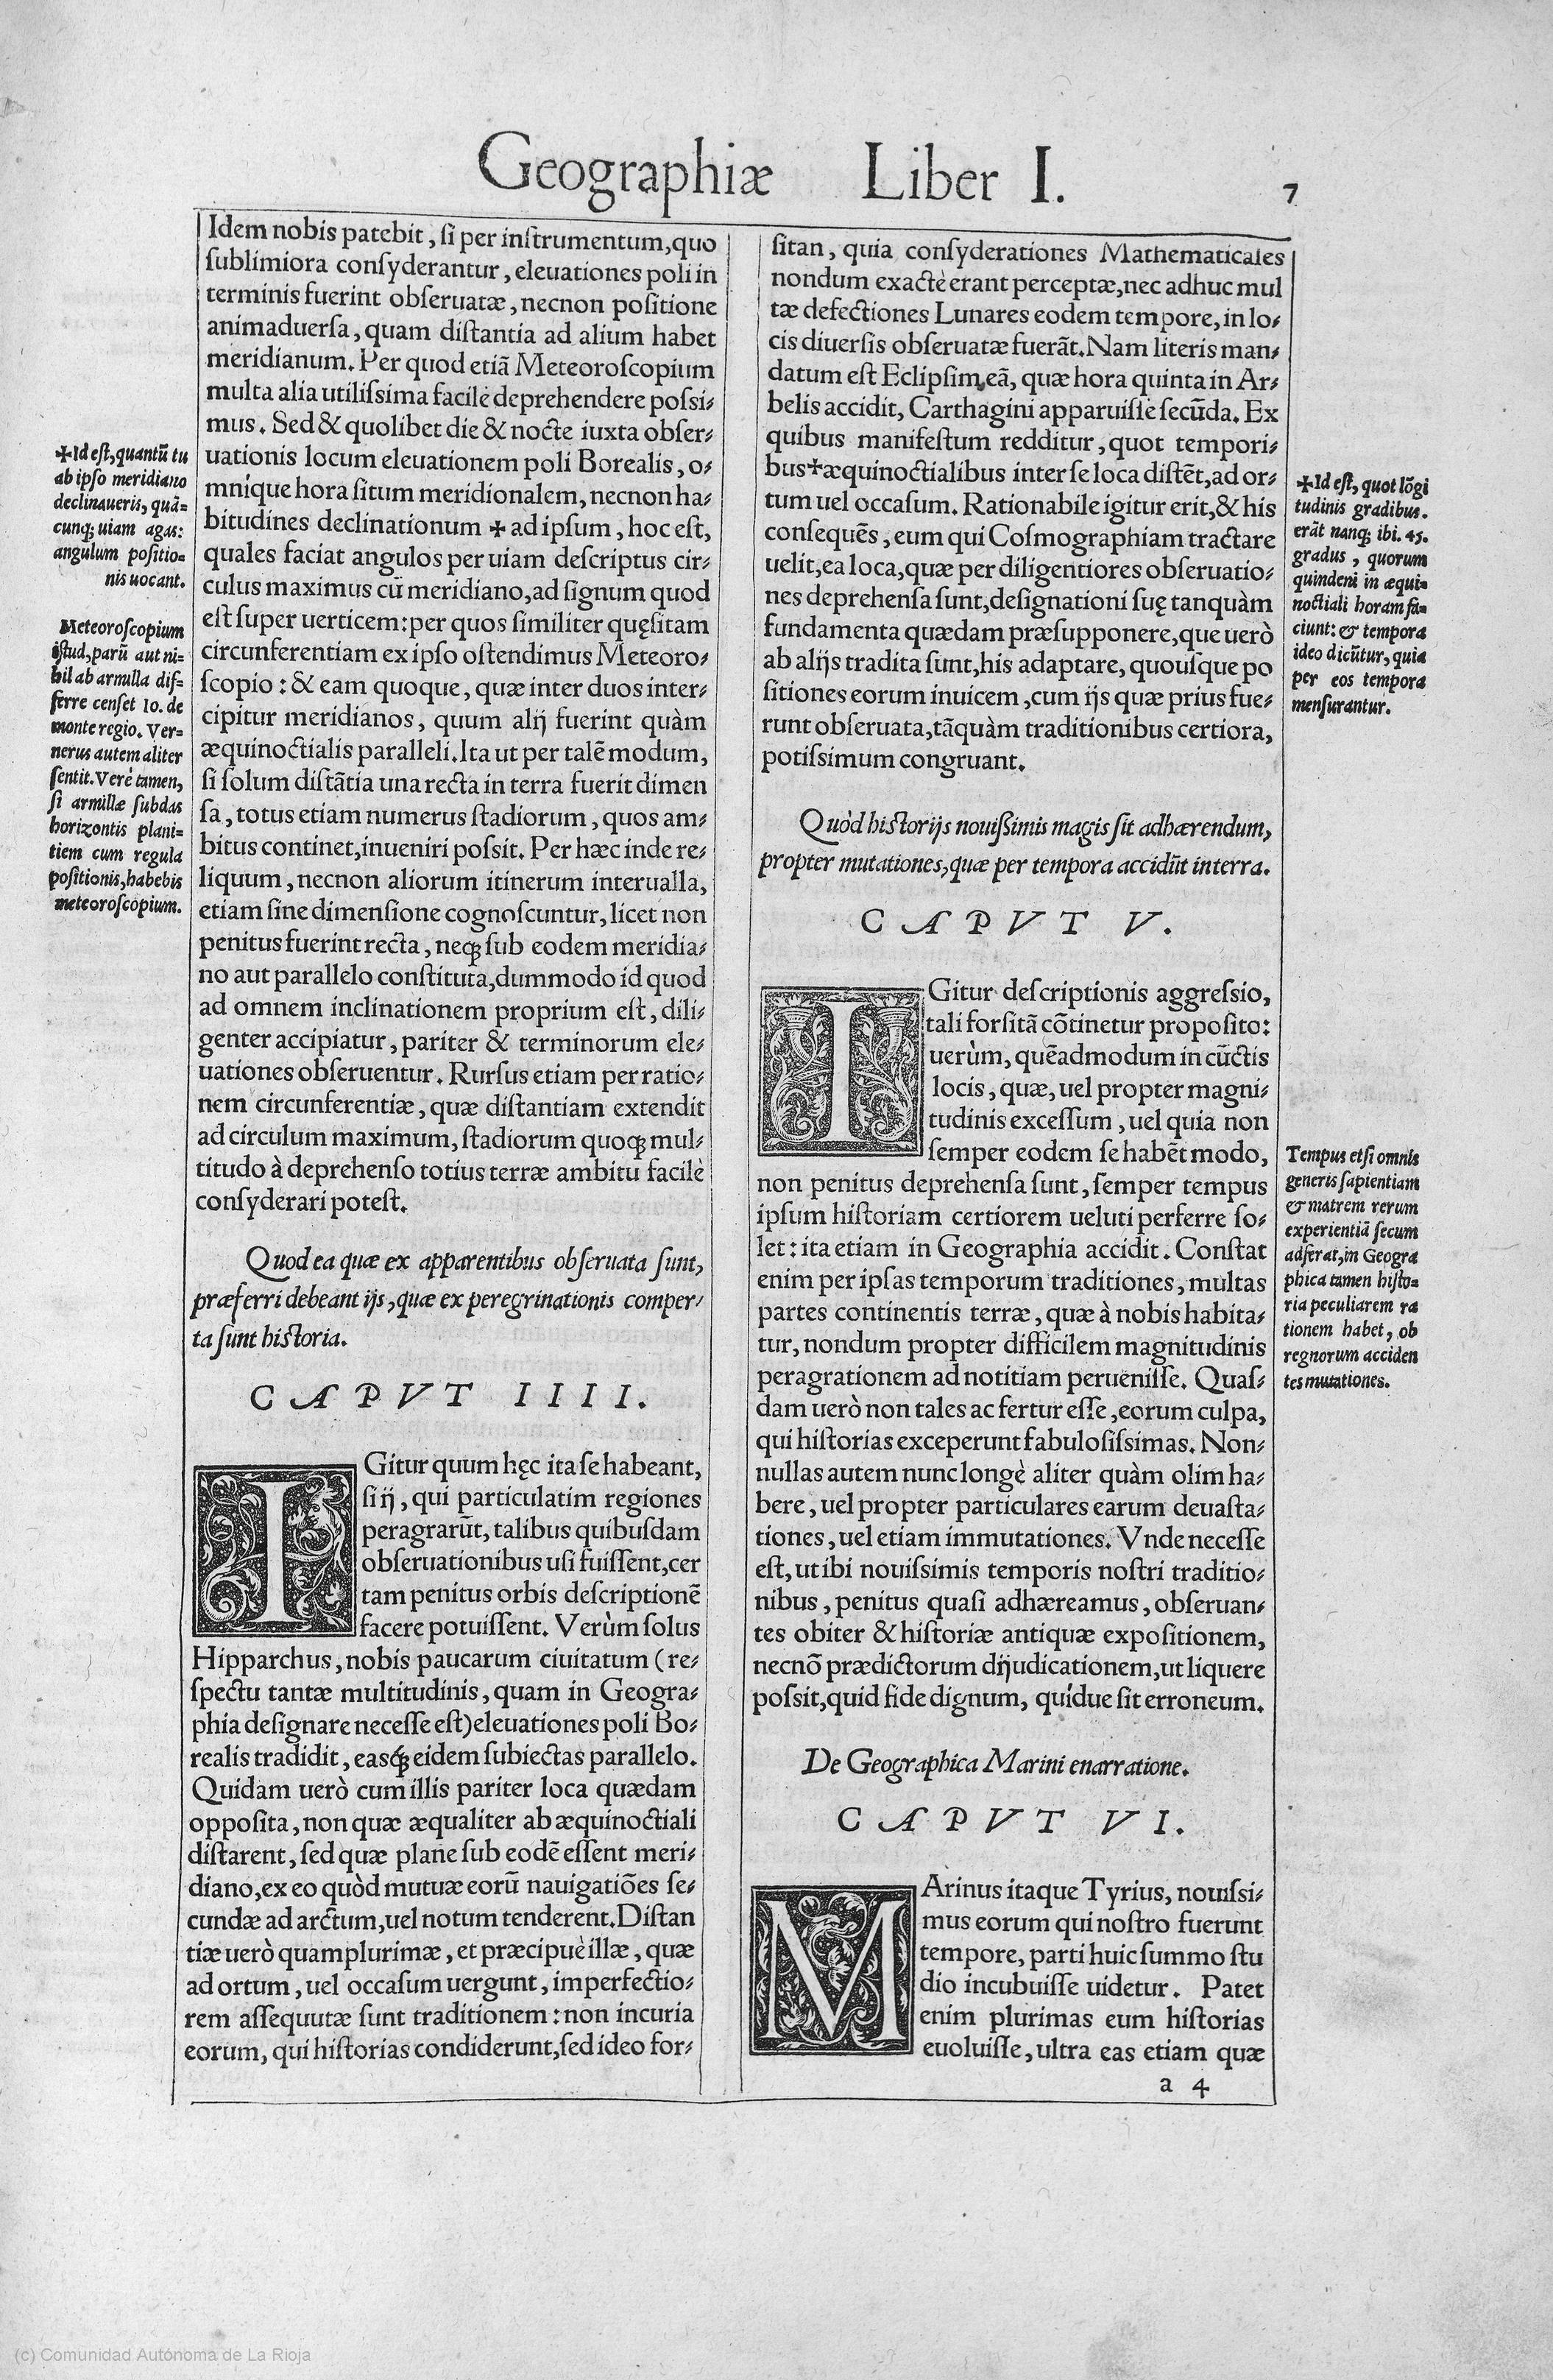 Geographiæ Liber I. 7
Idem nobis patebit, ſi per inſtrumentum, quo
ſublimiora conſyderantur, eleuationes poli in
terminis fuerint obſeruatæ, necnon poſitione
animaduerſa, quam diſtantia ad alium habet
meridianum. Per quod etiã Meteoroſcopium
multa alia utiliſsima facile deprehendere poſsi-
mus. Sed & quolibet die & nocte iuxta obſer-
uationis locum eleuationem poli Borealis, o-
mniq́ue hora ſitum meridionalem, necnon ha-
bitudines declinationum ✢ ad ipſum, hoc eſt,
quales faciat angulos per uiam deſcriptus cir-
culus maximus cũ meridiano, ad ſignum quod
eſt ſuper uerticem: per quos ſimiliter quęſitam
circunferentiam ex ipſo oſtendimus Meteoro-
ſcopio: & eam quoque, quæ inter duos inter-
cipitur meridianos, quum alij fuerint quàm
æquinoctialis paralleli. Ita ut per talẽ modum,
ſi ſolum diſtãtia una recta in terra fuerit dimen
ſa, totus etiam numerus ſtadiorum, quos am-
bitus continet, inueniri poſsit. Per hæc inde re-
liquum, necnon aliorum itinerum interualla,
etiam ſine dimenſione cognoſcuntur, licet non
penitus fuerint recta, neq; ſub eodem meridia-
no aut parallelo conſtituta, dummodo id quod
ad omnem inclinationem proprium eſt, dili-
genter accipiatur, pariter & terminorum ele-
uationes obſeruentur. Rurſus etiam per ratio-
nem circunferentiæ, quæ diſtantiam extendit
ad circulum maximum, ſtadiorum quoq; mul-
titudo à deprehenſo totius terræ ambitu facilè
conſyderari poteſt.
Quod ea quæ ex apparentibus obſeruata ſunt,
præferri debeant ijs, quæ ex peregrinationis comper-
ta ſunt historia.
CAPVT IIII.
IGitur quum hęc ita ſe habeant,
ſi ij, qui particulatim regiones
peragrarũt, talibus quibuſdam
obſeruationibus uſi fuiſſent, cer
tam penitus orbis deſcriptionẽ
facere potuiſſent. Verùm ſolus
Hipparchus, nobis paucarum ciuitatum (re-
ſpectu tantæ multitudinis, quam in Geogra-
phia deſignare neceſſe eſt) eleuationes poli Bo-
realis tradidit, easq́; eidem ſubiectas parallelo.
Quidam uerò cum illis pariter loca quædam
oppoſita, non quæ æqualiter ab æquinoctiali
diſtarent, ſed quæ plane ſub eodẽ eſſent meri-
diano, ex eo quòd mutuæ eorũ nauigatiões ſe-
cundæ ad arctum, uel notum tenderent. Diſtan
tiæ uerò quamplurimæ, et præcipuè illæ, quæ
ad ortum, uel occaſum uergunt, imperfectio-
rem aſſequutæ ſunt traditionem: non incuria
eorum, qui hiſtorias condiderunt, ſed ideo for-
✢ Id eſt, quantũ tu
ab ipſo meridiano
declinaueris, quã-
cunq; uiam agas:
angulum poſitio-
nis uocant.
Meteoroſcopium
iſtud, parũ aut ni-
hil ab armilla dif-
ferre cenſet Io. de
monte regio. Ver-
nerus autem aliter
ſentit. Verè tamen,
ſi armillæ ſubdas
horizontis plani-
tiem cum regula
poſitionis, habebis
meteoroſcopium.
ſitan, quia conſyderationes Mathematicales
nondum exactè erant perceptæ, nec adhuc mul
tæ defectiones Lunares eodem tempore, in lo-
cis diuerſis obſeruatæ fuerãt. Nam literis man-
datum eſt Eclipſim eã, quæ hora quinta in Ar-
belis accidit, Carthagini apparuiſſe ſecũda. Ex
quibus manifeſtum redditur, quot tempori-
bus ✢ æquinoctialibus inter ſe loca diſtẽt, ad or-
tum uel occaſum. Rationabile igitur erit, & his
conſequẽs, eum qui Coſmographiam tractare
uelit, ea loca, quæ per diligentiores obſeruatio-
nes deprehenſa ſunt, deſignationi ſuę tanquàm
fundamenta quædam præſupponere, que uerò
ab alijs tradita ſunt, his adaptare, quouſque po
ſitiones eorum inuicem, cum ijs quæ prius fue-
runt obſeruata, tãquàm traditionibus certiora,
potiſsimum congruant.
Quòd historijs nouiſsimis magis ſit adhærendum,
propter mutationes, quæ per tempora accidũt in terra.
CAPVT V.
IGitur deſcriptionis aggreſsio,
tali forſitã cõtinetur propoſito:
uerùm, quẽadmodum in cũctis
locis, quæ, uel propter magni-
tudinis exceſſum, uel quia non
ſemper eodem ſe habẽt modo,
non penitus deprehenſa ſunt, ſemper tempus
ipſum hiſtoriam certiorem ueluti perferre ſo-
let: ita etiam in Geographia accidit. Conſtat
enim per ipſas temporum traditiones, multas
partes continentis terræ, quæ à nobis habita-
tur, nondum propter difficilem magnitudinis
peragrationem ad notitiam perueniſſe. Quaſ-
dam uerò non tales ac fertur eſſe, eorum culpa,
qui hiſtorias exceperunt fabuloſiſsimas. Non-
nullas autem nunc longè aliter quàm olim ha-
bere, uel propter particulares earum deuaſta-
tiones, uel etiam immutationes. Vnde neceſſe
eſt, ut ibi nouiſsimis temporis noſtri traditio-
nibus, penitus quaſi adhæreamus, obſeruan-
tes obiter & hiſtoriæ antiquæ expoſitionem,
necnõ prædictorum dijudicationem, ut liquere
poſsit, quid fide dignum, quidue ſit erroneum.
De Geographica Marini enarratione.
CAPVT VI.
MArinus itaque Tyrius, nouiſsi-
mus eorum qui noſtro fuerunt
tempore, parti huic ſummo ſtu
dio incubuiſſe uidetur. Patet
enim plurimas eum hiſtorias
euoluiſſe, ultra eas etiam quæ
a 4
✢ Id eſt, quot lõgi
tudinis gradibus.
erãt nanq; ibi. 45.
gradus, quorum
quindeni in æqui-
noctiali horam fa-
ciunt: & tempora
ideo dicũtur, quia
per eos tempora
menſurantur.
Tempus etſi omnis
generis ſapientiam
& matrem rerum
experientiã ſecum
adferat, in Geogra
phica tamen hiſto-
ria peculiarem ra
tionem habet, ob
regnorum acciden
tes mutationes.
(c) Comunidad Autónoma de La Rioja